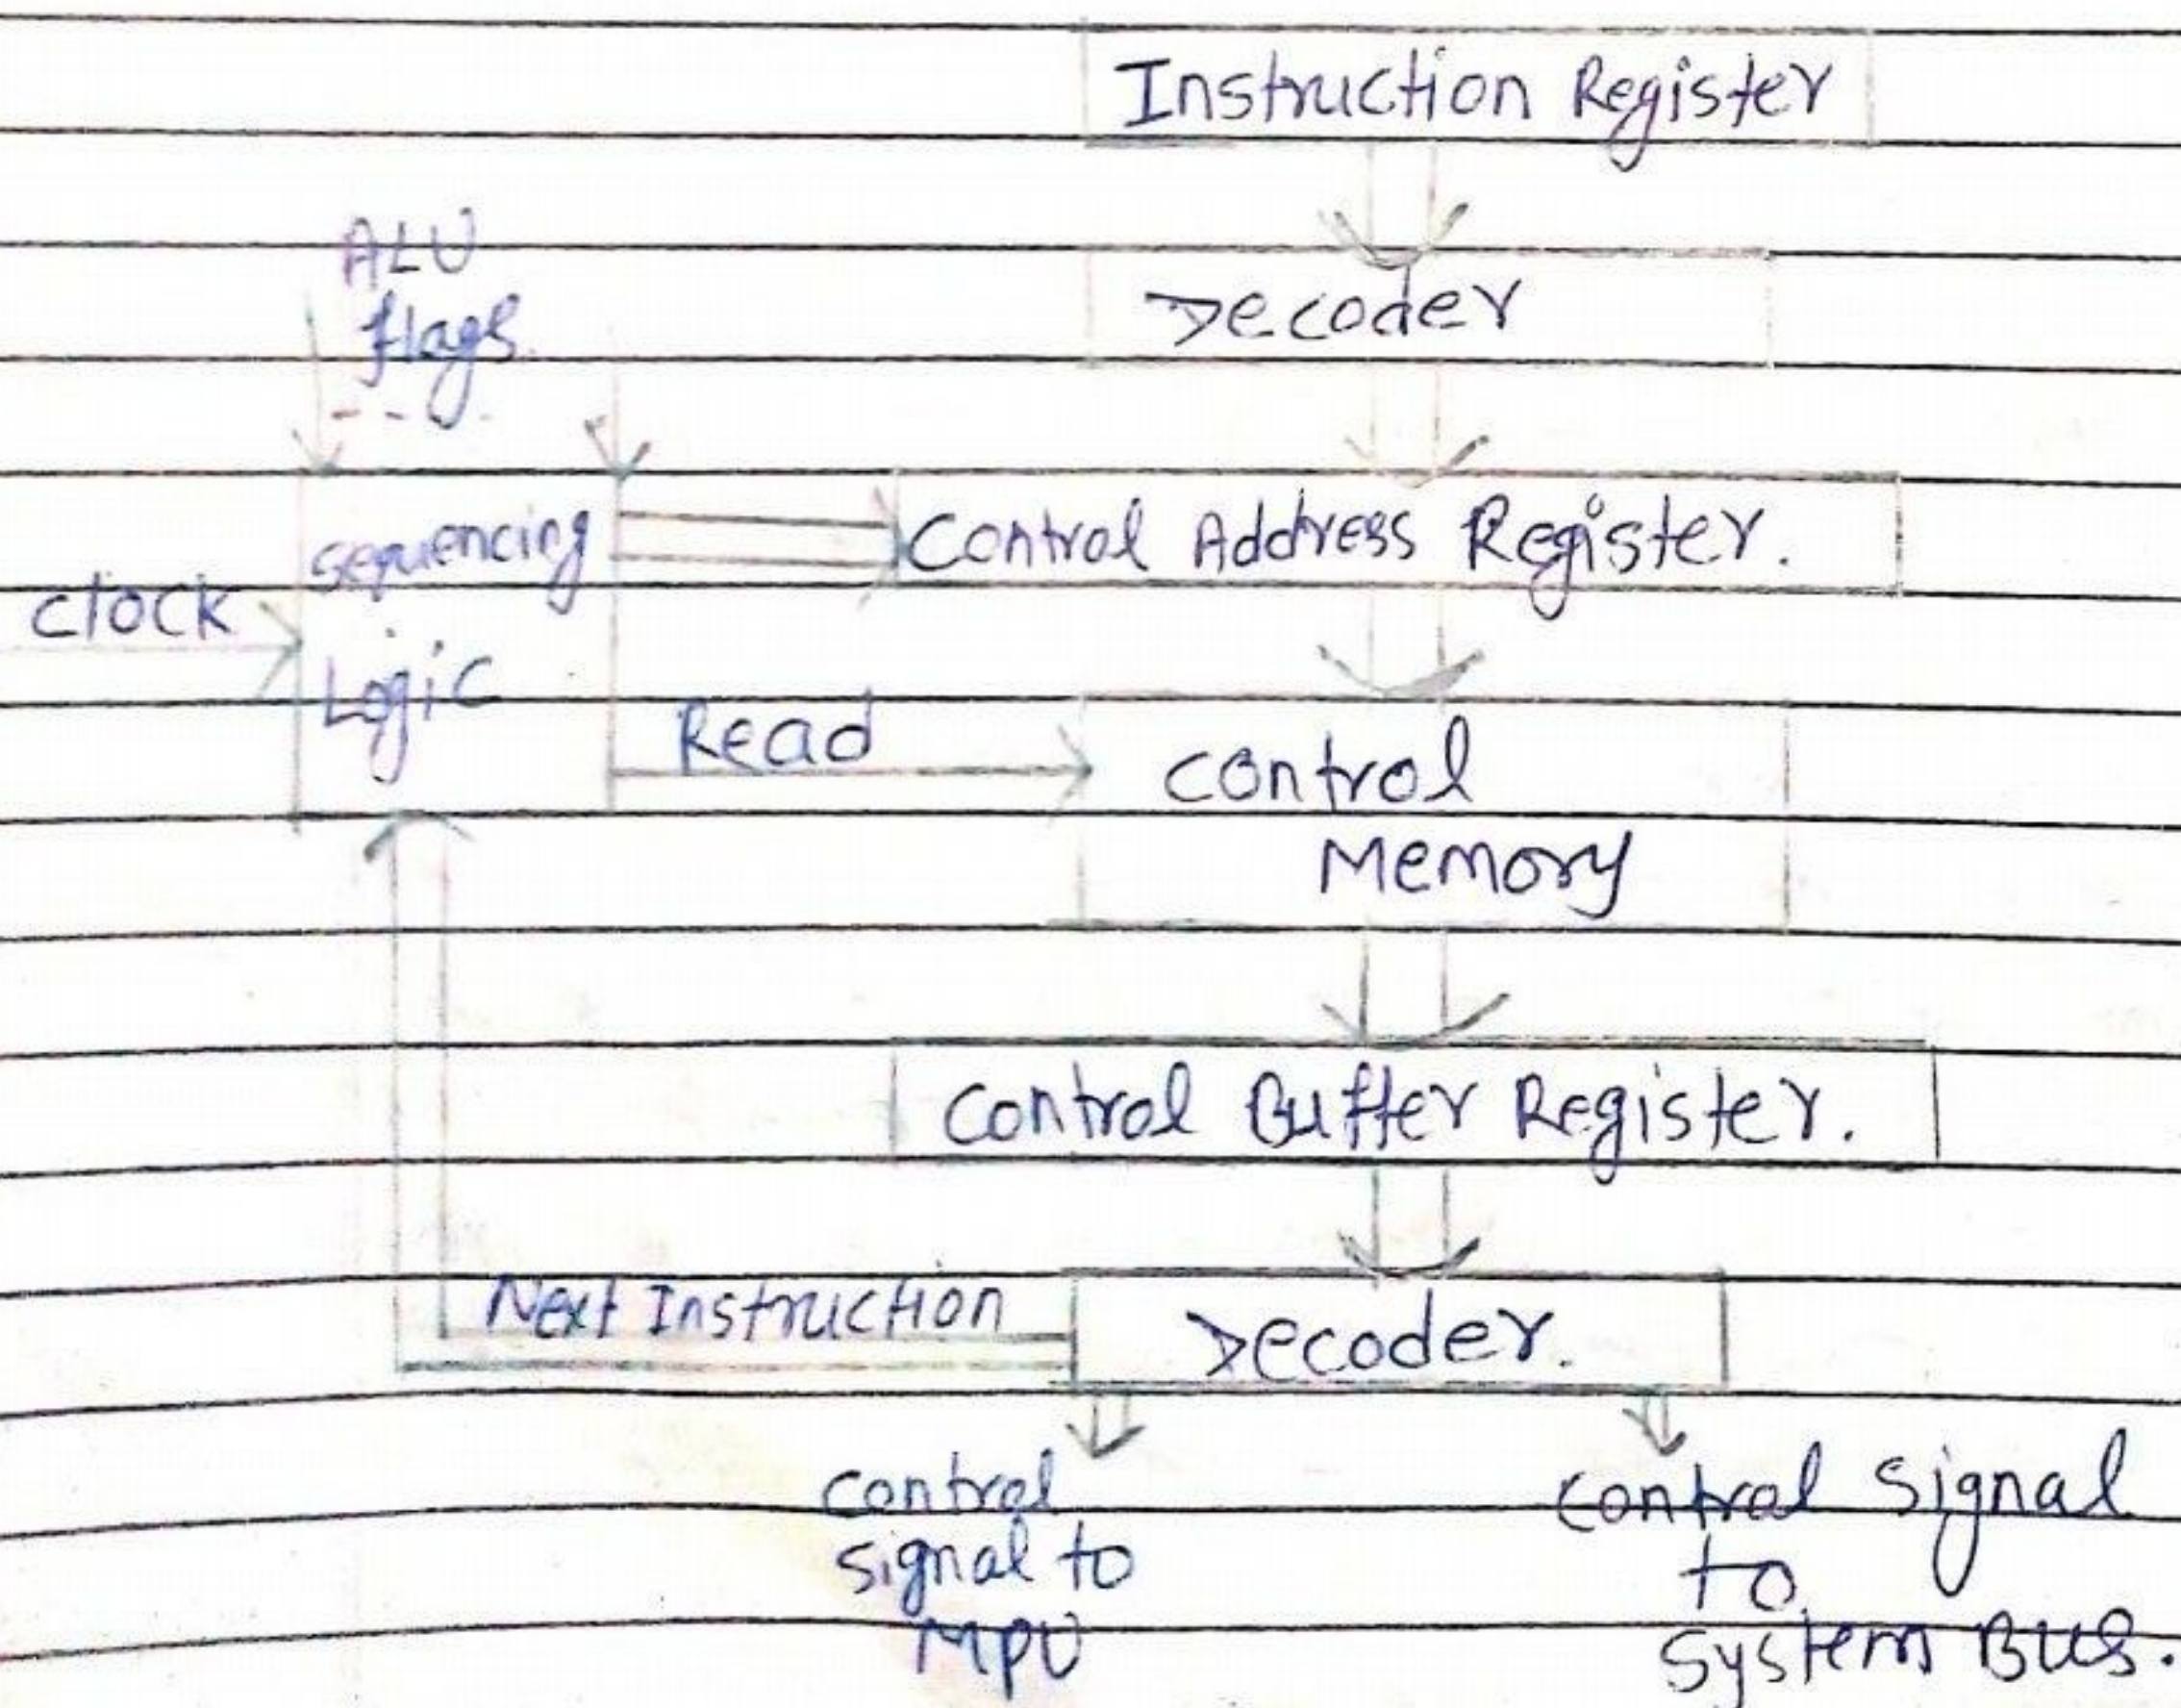 Instruction Register
ALU
flags
Decoder
sequencing
Logic
Control Address Register.
clock
Read
control
Memory
Control Buffer Register.
Next Instruction
Decoder.
control
signal to
MPU
control signal
to
system Bus.